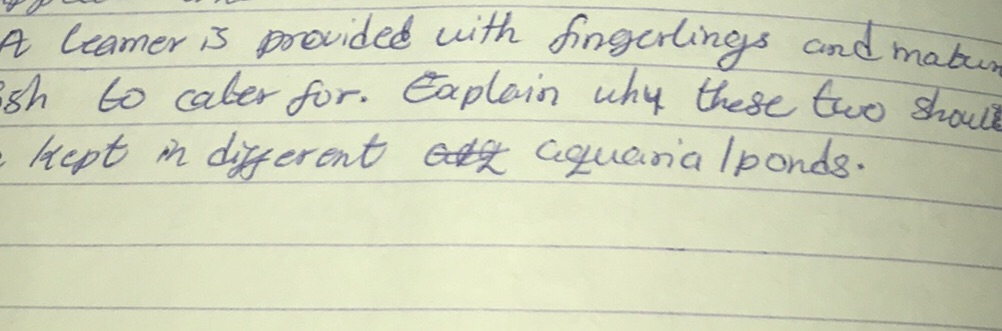 A learner is provided with fingerlings and matur
ish to cater for. Explain why these two shoul
kept in different aquaria/ponds.